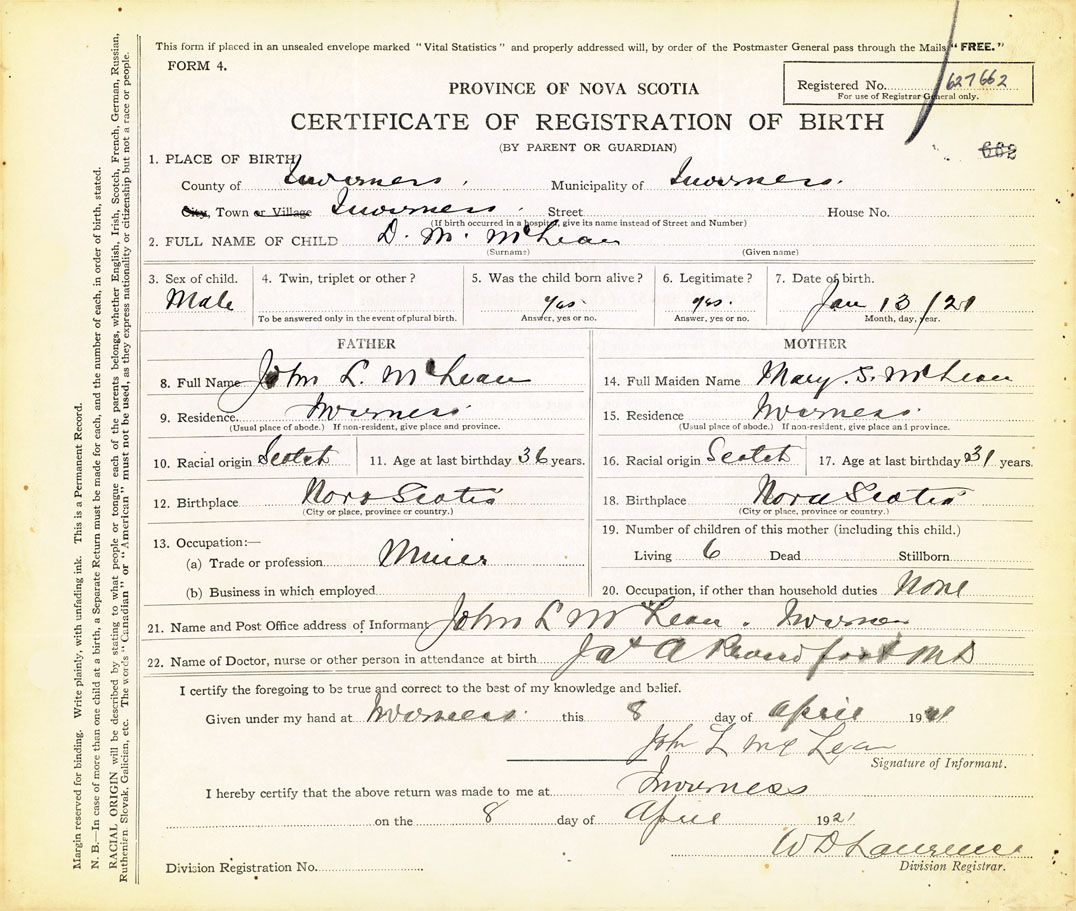 This form if placed in an unsealed envelope marked "Vital Statistics" and properly addressed will, by order of the Postmaster General pass through the Mails "FREE."
FORM 4.
Registered No. 627662
For use of Registrar General only.
PROVINCE OF NOVA SCOTIA
CERTIFICATE OF REGISTRATION OF BIRTH
(BY PARENT OR GUARDIAN)
662
1. PLACE OF BIRTH
County of Inverness. Municipality of Inverness.
City, Town or Village Inverness. Street House No.
(If birth occurred in a hospital, give its name instead of Street and Number)
2. FULL NAME OF CHILD D. M. McLean
(Surname) (Given name)
3. Sex of child. 4. Twin, triplet or other? 5. Was the child born alive? 6. Legitimate? 7. Date of birth.
Male yes yes. Jan 13/21
To be answered only in the event of plural birth. Answer, yes or no. Answer, yes or no. Month, day, year.
FATHER
8. Full Name John L. McLean
9. Residence. Inverness.
(Usual place of abode.) If non-resident, give place and province.
10. Racial origin Scotch 11. Age at last birthday 36 years.
12. Birthplace Nova Scotia
(City or place, province or country.)
13. Occupation:—
(a) Trade or profession Miner
(b) Business in which employed
MOTHER
14. Full Maiden Name Mary. S. McLean
15. Residence Inverness.
(Usual place of abode.) If non-resident, give place and province.
16. Racial origin Scotch 17. Age at last birthday 31 years.
18. Birthplace Nova Scotia
(City or place, province or country.)
19. Number of children of this mother (including this child.)
Living 6 Dead Stillborn
20. Occupation, if other than household duties None
21. Name and Post Office address of Informant John L McLean. Inverness
22. Name of Doctor, nurse or other person in attendance at birth A MD
I certify the foregoing to be true and correct to the best of my knowledge and belief.
Given under my hand at Inverness. this 8 day of April 1921
John L McLean
Signature of Informant.
I hereby certify that the above return was made to me at Inverness
on the 8 day of April 1921
W D Lawrence
Division Registration No. Division Registrar.
Margin reserved for binding. Write plainly, with unfading ink. This is a Permanent Record.
N. B.—In case of more than one child at a birth, a Separate Return must be made for each, and the number of each, in order of birth, stated.
RACIAL ORIGIN will be described by stating to what people or tongue each of the parents belongs, whether English, Irish, Scotch, French, German, Russian,
Ruthenian, Slovak, Galician, etc. The words "Canadian" or "American" must not be used, as they express nationality or citizenship but not a race or people.